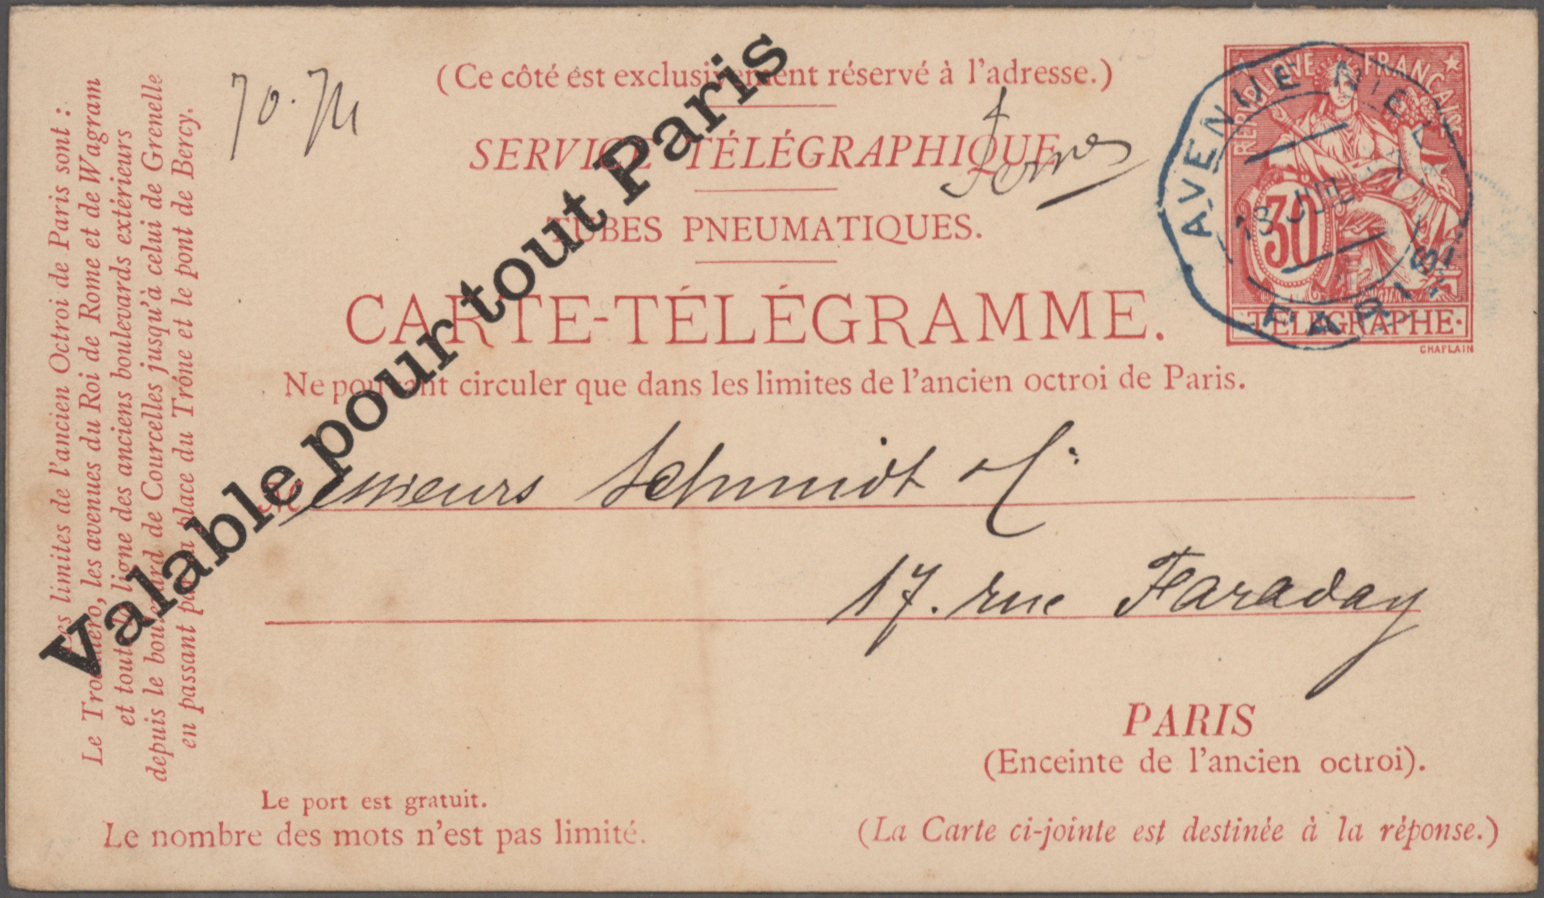 (Ce côté est exclusivement réservé à l'adresse.)
SERVICE TÉLÉGRAPHIQUE
TUBES PNEUMATIQUES.
CARTE-TÉLÉGRAMME.
Ne pouvant circuler que dans les limites de l'ancien octroi de Paris.
Valable pour tout Paris
Messieurs Schmidt & Cie
17. rue Faraday
PARIS
(Enceinte de l'ancien octroi).
(La Carte ci-jointe est destinée à la réponse.)
Le port est gratuit.
Le nombre des mots n'est pas limité.
Les limites de l'ancien Octroi de Paris sont :
Le Trocadéro, les avenues du Roi de Rome et de Wagram
et toute la ligne des anciens boulevards extérieurs
depuis le boulevard de Courcelles jusqu'à celui de Grenelle
en passant par la place du Trône et le pont de Bercy.
REPUBLIQUE FRANÇAISE
30
TELEGRAPHE
CHAPLAIN
AVENUE NIEL
18 JUIL
PARIS